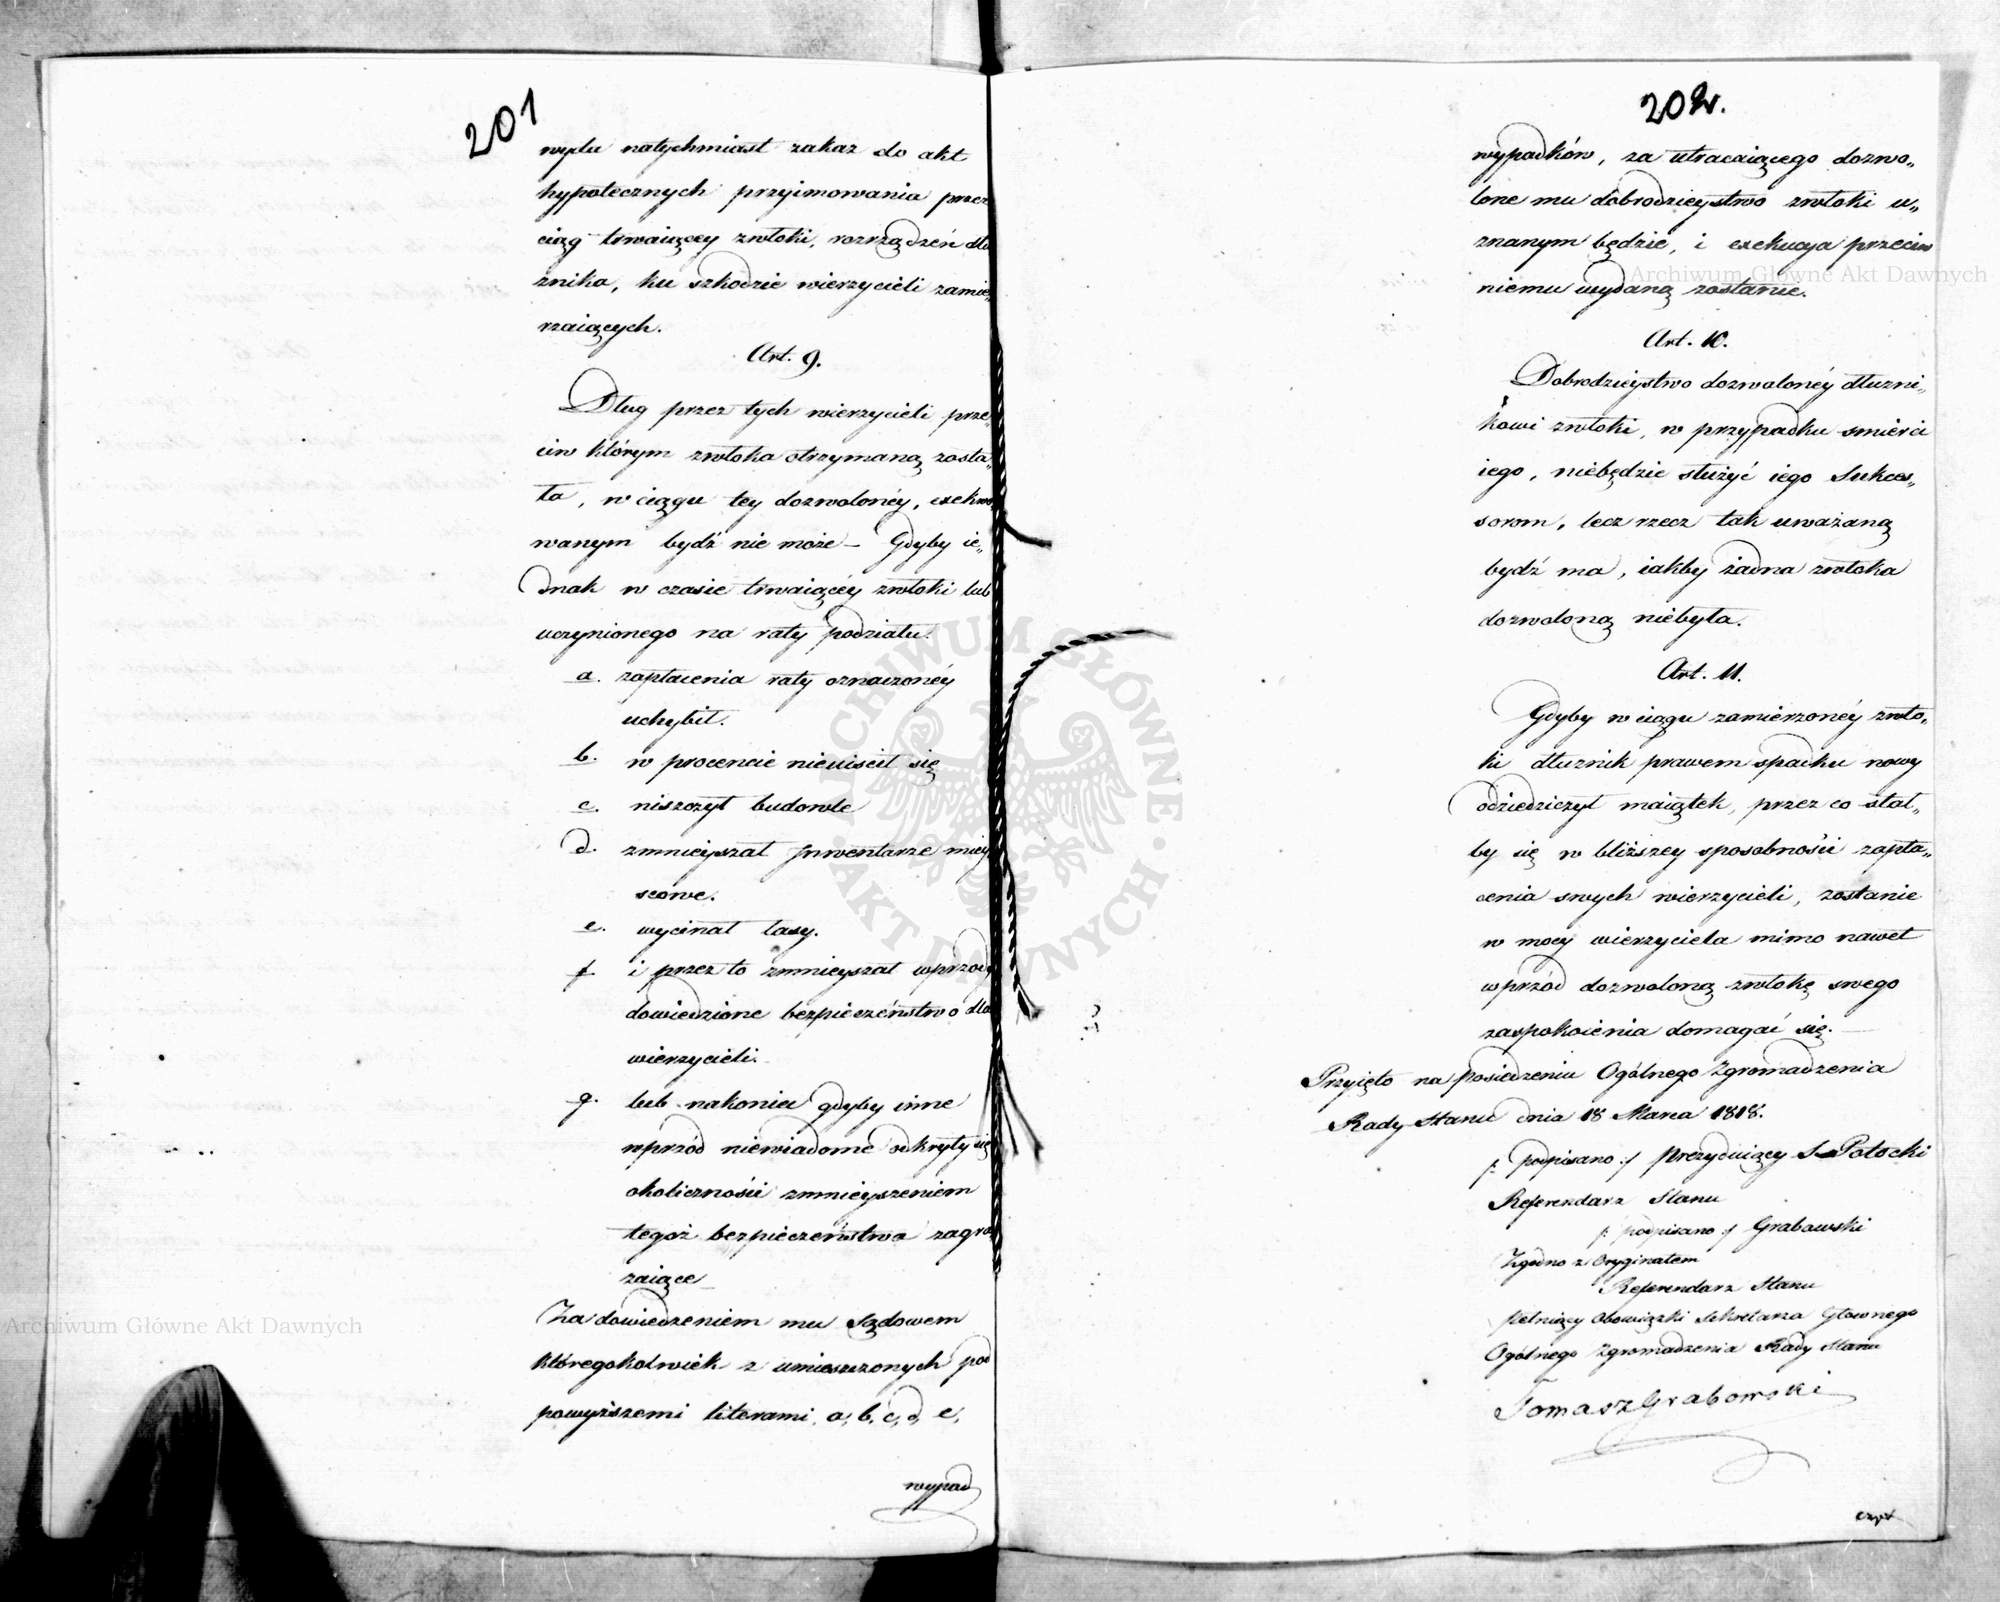 201
wyda natychmiast zakaz do akt
hypotecznych przyimowania przez
ciąg trwaiącey zwłoki, rozrządzeń dłu
żnika, ku szkodzie wierzycieli zamie„
rzaiących.
Art. 9.
Dług przez tych wierzycieli prze„
ciw którym zwłoka otrzymaną zosta„
ła, w ciągu tey dozwolonéy, exekwo„
wanym bydź nie może – Gdyby ie„
dnak w czasie trwaiącéy zwłoki lub
uczynionego na raty podziału.
a. zapłacenia raty oznaczonéy
uchybił.
b. w procencie nieuiścił się
c. niszczył budowle
d. zmnieyszał Inwentarze miey
scowe.
e. wycinał lasy.
f i przez to zmnieyszał wprzody
dowiedzione bezpieczeństwo dla
wierzycieli.
g. lub nakoniec gdyby inne
wprzód niewiadome odkryły się
okoliczności zmnieyszeniem
tegoż bezpieczeństwa zagra„
żaiące
Za dowiedzeniem mu Sądowem
któregokolwiek z umieszczonych pod
powyższemi literami, a, b, c, d, e,
wypad
202.
wypadków, za utracaiącego dozwo„
lone mu dobrodzieystwo zwłoki u„
znanym będzie, i exekucya przeciw
niemu wydaną zostanie.
Art. 10.
Dobrodzieystwo dozwolonéy dłużni„
kowi zwłoki, w przypadku śmierci
iego, niebędzie służyć iego Sukces„
sorom, lecz rzecz tak uważaną
bydź ma, iakby żadna zwłoka
dozwoloną niebyła.
Art. 11.
Gdyby w ciągu zamierzonéy zwło„
ki dłużnik prawem spadku nowy
odziedziczył maiątek, przez co stał„
by się w bliższey sposobności zapła„
cenia swych wierzycieli, zostanie
w mocy wierzyciela mimo nawet
wprzód dozwoloną zwłokę swego
zaspokoienia domagać się.
Przyięto na posiedzeniu Ogólnego Zgromadzenia
Rady Stanu dnia 18 Marca 1818.
/: podpisano :/ Prezyduiący S. Potocki
Referendarz Stanu
/: podpisano :/ Grabowski
Zgodno z Oryginałem
Referendarz Stanu
Pełniący Obowiązki Sekretarza Głownego
Ogólnego Zgromadzenia Rady Stanu
Tomasz Grabowski
Archiwum Główne Akt Dawnych
Archiwum Główne Akt Dawnych
ARCHIWUM GŁÓWNE · AKT DAWNYCH ·